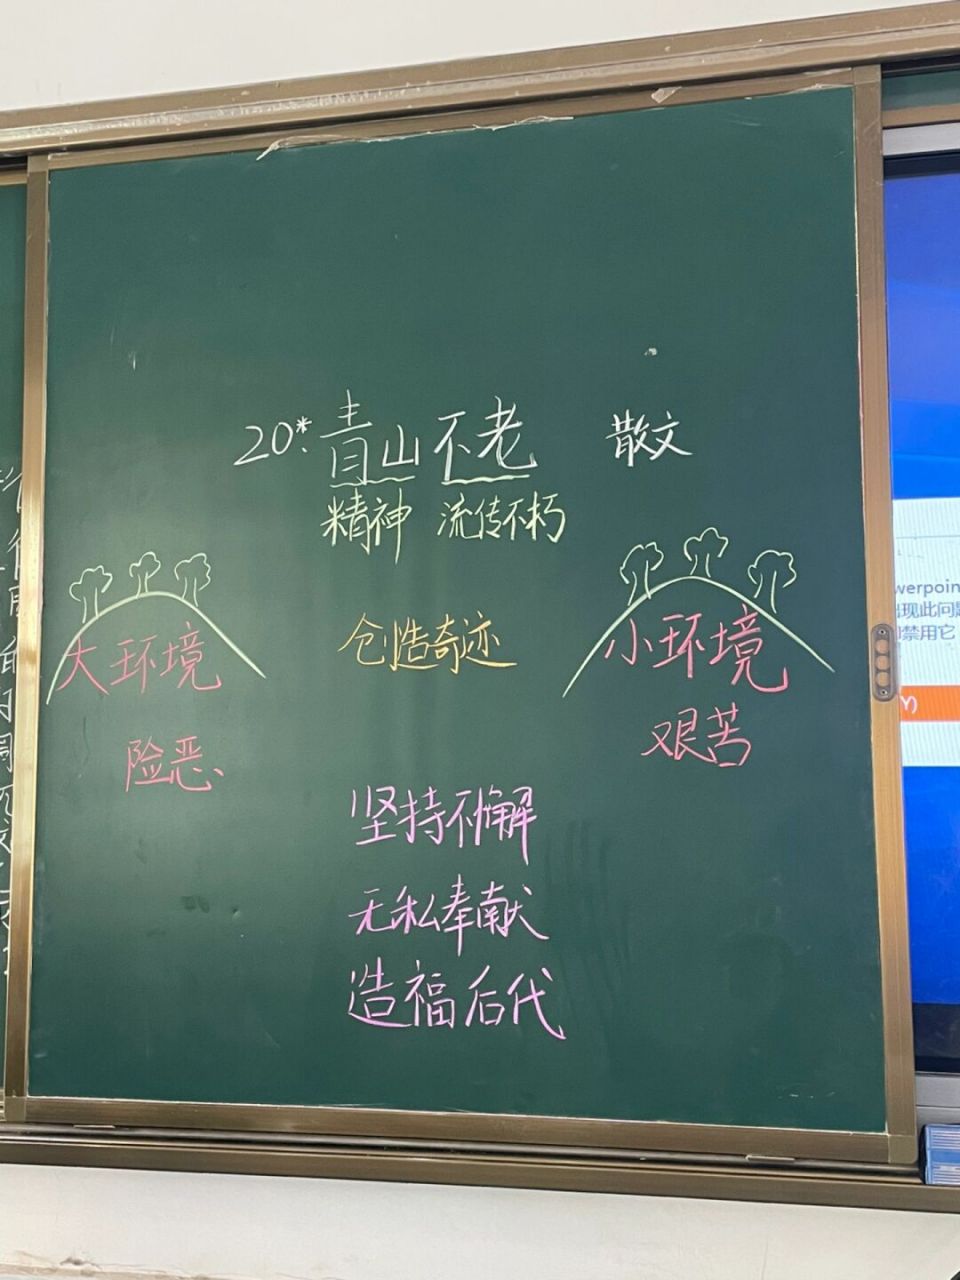 20*. 青山不老 散文
精神 流传不朽
大环境 创造奇迹 小环境
险恶 艰苦
坚持不懈
无私奉献
造福后代
werpoin
出现此问题
禁用它